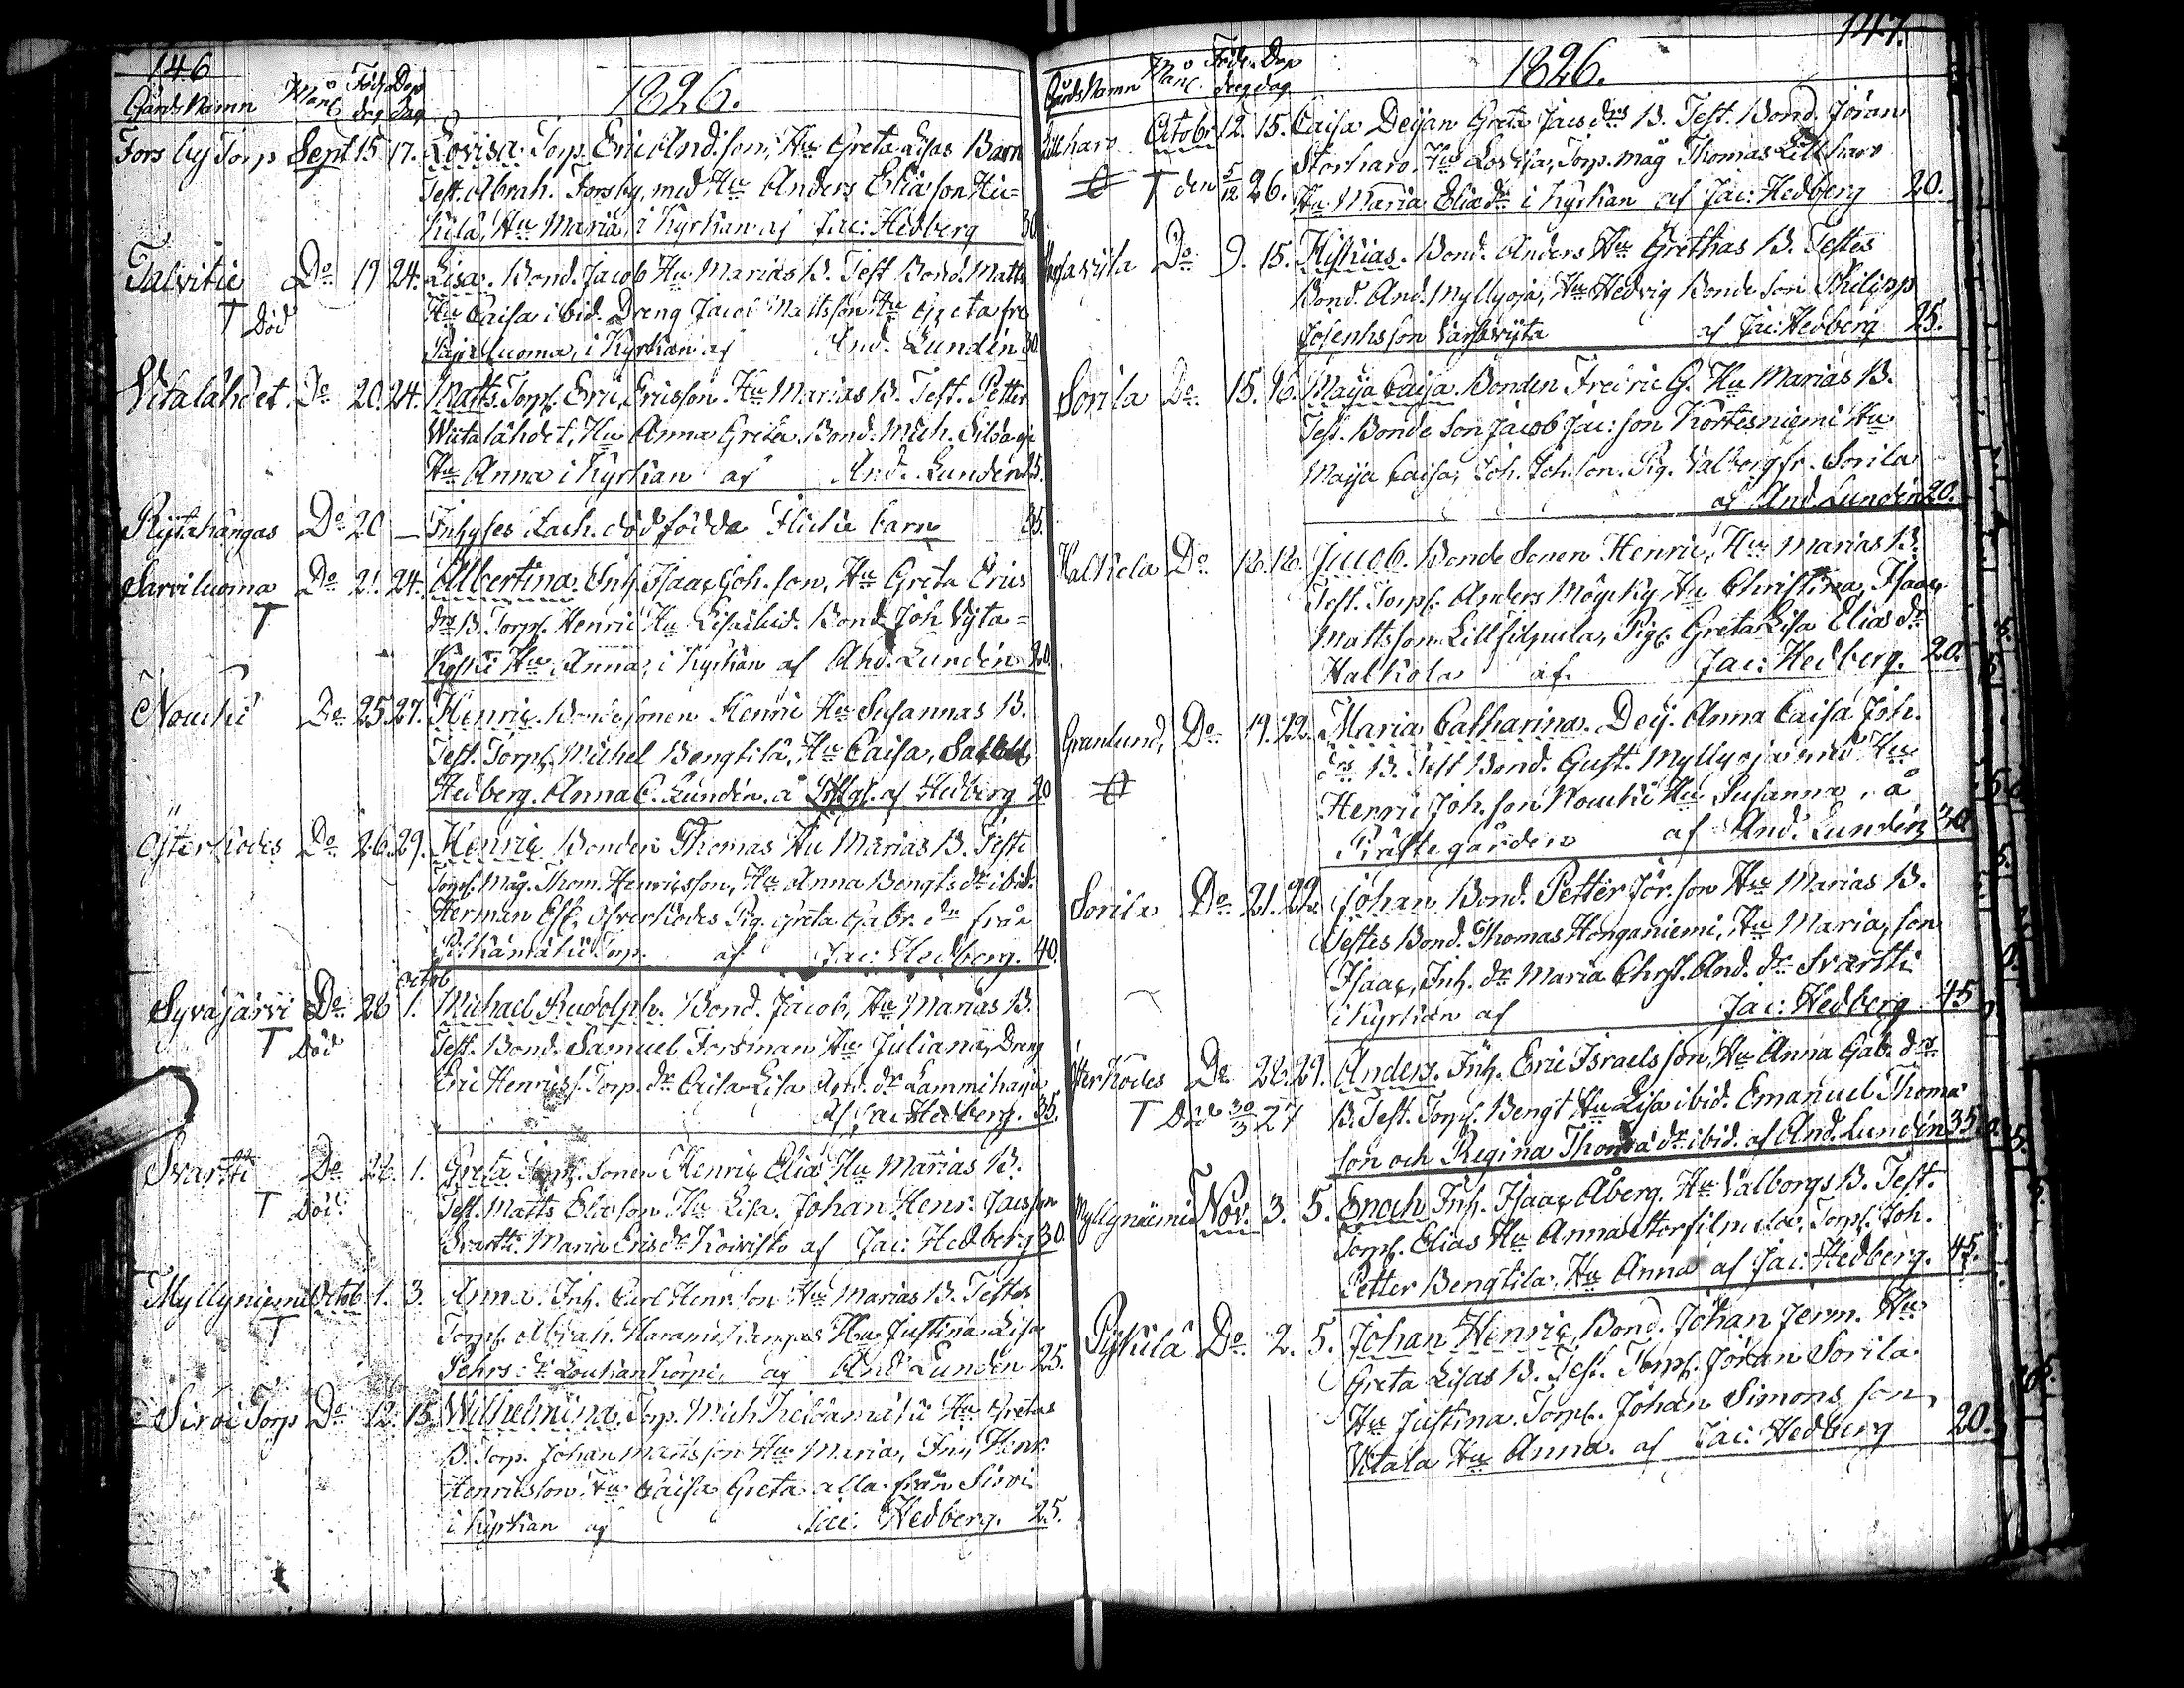 146
Gårds Namn Mån Föd. dag Dop Dag 1826.
Forsby Torp Sept 15. 17. Lovisa. Torp. Eric And.son, Hu Greta Lisas Barn
Test. Abrah. Forsby, med Hu Anders Eliasson Hie=
kilä, Hu Maria, i Kyrkan af Jac: Hedberg 30
Talvitie Do 19 24. Lisa. Bond. Jacob Hu Marias B. Test Bond. Matts
T Död Hu Caisa ibid. Dreng Jacob Mattsson Hu Greta frå
luoma, i Kyrkan af And. Lundén 30
Vitalähdet Do 20. 24. Matts. Torp. Eric Ericsson Hu Marias B. Test. Petter
Wiitalähdet, Hu Anna Greta. Bond. Mich.
Hu Anna i Kyrkan af And. Lundén 25.
Rytikangas Do 20 — Inhyses Lach. dödfödda Flicke barn 35.
Sarviluoma Do 21. 24. Albertina. Inh. Isaac Joh.son, Hu Greta Erics
T drs B. Torp. Henric Hu Lisa ibid. Bond Joh Vyta=
koski Hu Anna, i Kyrkan af And. Lundén 20
Noucki Do 25 27. Henric. Bondesonen Henric Hu Susannas B.
Test. Torp. Michel Bengtilä, Hu Caisa,
Hedberg. Anna C. Lundén. å af Hedberg 20
Österkodes Do 26. 29. Henric Bonden Thomas Hu Marias B. Teste
Torp. Måg. Thom. Henricsson, Hu Anna Bengts dr ibid.
Herman Öfverkodes Pig. Greta Gabr. dr från
Torp. af Jac: Hedberg. 40.
Octob
Syväjärvi Do 28 1. Michael Rudolph. Bond. Jacob, Hu Marias B.
T Död Test. Bond. Samuel Forsman Hu Juliana, Dreng
Eric Henricss. Torp. dr Caisa Lisa And. dr Lammihagu
af Jac Hedberg. 35.
Svartti Do 28. 1. Greta Torp. Sonen Henric Elias Hu Marias B.
T Död. Test. Matts Eliasson Hu Lisa. Johan Henr. Jacsson
Svartti. Maria Erics dr Koivisto af Jac: Hedberg 30.
Myllyniemi Octob 1. 3. Anna. Inh. Carl Henr.son Hu Marias B. Testes
T Torp. Abrah. Hu Justina. Lisa
Pehrs: dr Louhankorpi, af And Lundén 25.
Sirvi Torp Do 12. 15. Wilhelmina. Torp. Mich Hu Gretas
B. Torp. Johan Mattsson Hu Maria, Inh Henr.
Henricsson, Hu Caisa Greta alla från Sirvi
i Kyrkan af Jac: Hedberg. 25.
147.
Gårds Namn Mån. Föd. dag Dop dag 1826.
Lillharo Octobr 12. 15. Caisa Deijan Greta Jacs drs B. Test. Bond. Jöran
Storharo. Hu Lovisa, Torp. måg Thomas Lillharo
T den 5/12 26. Hu Maria Elias dr i Kyrkan af Jac: Hedberg 20.
Do 9. 15. Bond. Anders Hu Grethas B. Testes
Bond. And. Myllyoja, Hu Hedvig Bonde Son Philipp
Josephsson Varpawyta af Jac: Hedberg 25.
Sorila Do 15. 16. Maija Caija. Bonden Fredric G. Hu Marias B.
Test. Bonde Son Jacob Jac: son Kortesniemi Hu
Maija Caisa, Joh. Joh.son. Pig. Valborg fr. Sorila
af And. Lundén 20.
Halkola Do 18. 18. Jacob. Bonde Sonen Henric, Hu Marias B.
Test. Torp. Anders Hu Christina, Isaac
Mattsson Lillfilpula, Pig. Greta Lisa Elias dr
Halkola af. Jac: Hedberg. 20.
Granlund, Do 19. 22. Maria Catharina. Deij. Anna Caisa Joh.
drs B. Test Bond. Gust. Myllyoja med Hu
Henric Joh.son Noucki Hu Susanna, å
Prästegården af And. Lundén 30
Sorila Do 21. 22. Johan Bond. Petter Jör.son Hu Marias B.
Testes Bond. Thomas Honganiemi, Hu Maria, son
Isaac, Inh. dr Maria Christ. And. dr Svartti
i Kyrkan af Jac: Hedberg 45
Österkodes Do 28. 29. Anders. Inh. Eric Israelsson, Hu Anna Gab. drs
T Död 30/3 27 B. Test. Torp. Bengt Hu Lisa ibid. Emanuel Thoma
son och Regina Thoma dr ibid. af And. Lundén 35
Myllyniemi Nov. 3. 5. Enoch Inh. Isaac Åberg. Hu Valborgs B. Test.
Torp. Elias Hu Anna Storfilpula. Torp. Joh.
Petter Bengtila. Hu Anna af Jac: Hedberg. 45.
Pyhilä Do 2. 5. Johan Henric, Bond. Johan Jerm. Hu
Greta Lisas B. Test. Torp. Jöran Sorila.
Hu Justina. Torp. Johan Simons son
Vitala Hu Anna. af Jac: Hedberg 20.